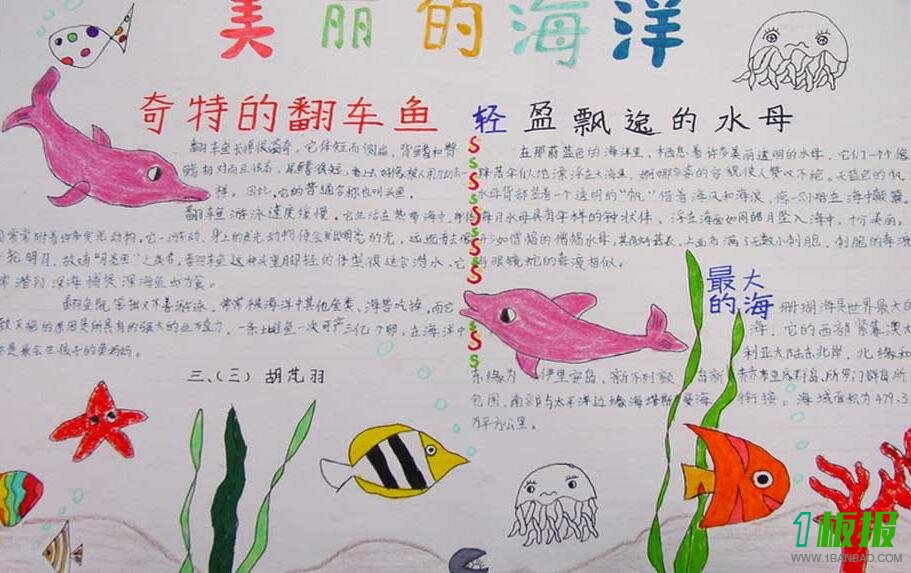 美丽的海洋
奇特的翻车鱼
翻车鱼长得很离奇，它体短而侧扁，背鳍和臀
鳍相对而且很高，尾鳍很短，看上去好像被人用刀切去一
样。因此，它的普通名称也叫头鱼。
翻车鱼游泳速度缓慢，它生活在热带海中，身体
周常常附着许多发光动物。它一游动，身上的发光动物便会发出明亮的光，远远看去像
轮明月，故有“月亮鱼”之美名。翻车鱼这种头重脚轻的体型很适合潜水，它
常潜到深海捕捉深海鱼虾为食。
翻车鱼笨拙又不善游泳，常常被海洋中其他鱼类、海兽吃掉。而它
致灭绝的原因是所具有的强大的生殖力，一条雌鱼一次可产三亿个卵，在海洋中
是最会生孩子的鱼妈妈。
三、(三) 胡芃羽
轻盈飘逸的水母
在那蔚蓝色的海洋里，栖息着许多美丽透明的水母，它们一个个像
降落伞似地漂浮在大海里，
水母背部竖着一个透明的“帆”借着海风和海浪，像一只小船在海中颠簸。
月水母具有伞样的钟状体，浮在海面如同皓月坠入海中，十分美丽。
如僧帽的僧帽水母，上面布满了无数小刺胞，刺胞的毒液
与眼镜蛇的毒液相似。
最大
的海
珊瑚海是世界最大的
海，它的西部紧靠澳大
利亚大陆东北岸，北缘和
东缘为伊里安岛、新不列颠岛、所罗门群岛所
包围，南部与太平洋边缘海塔斯曼海衔接。海域面积为479.3
万平方公里。
S
S
S
S
S
S
S
S
S
S
S
S
1板报
WWW.1BANBAO.COM